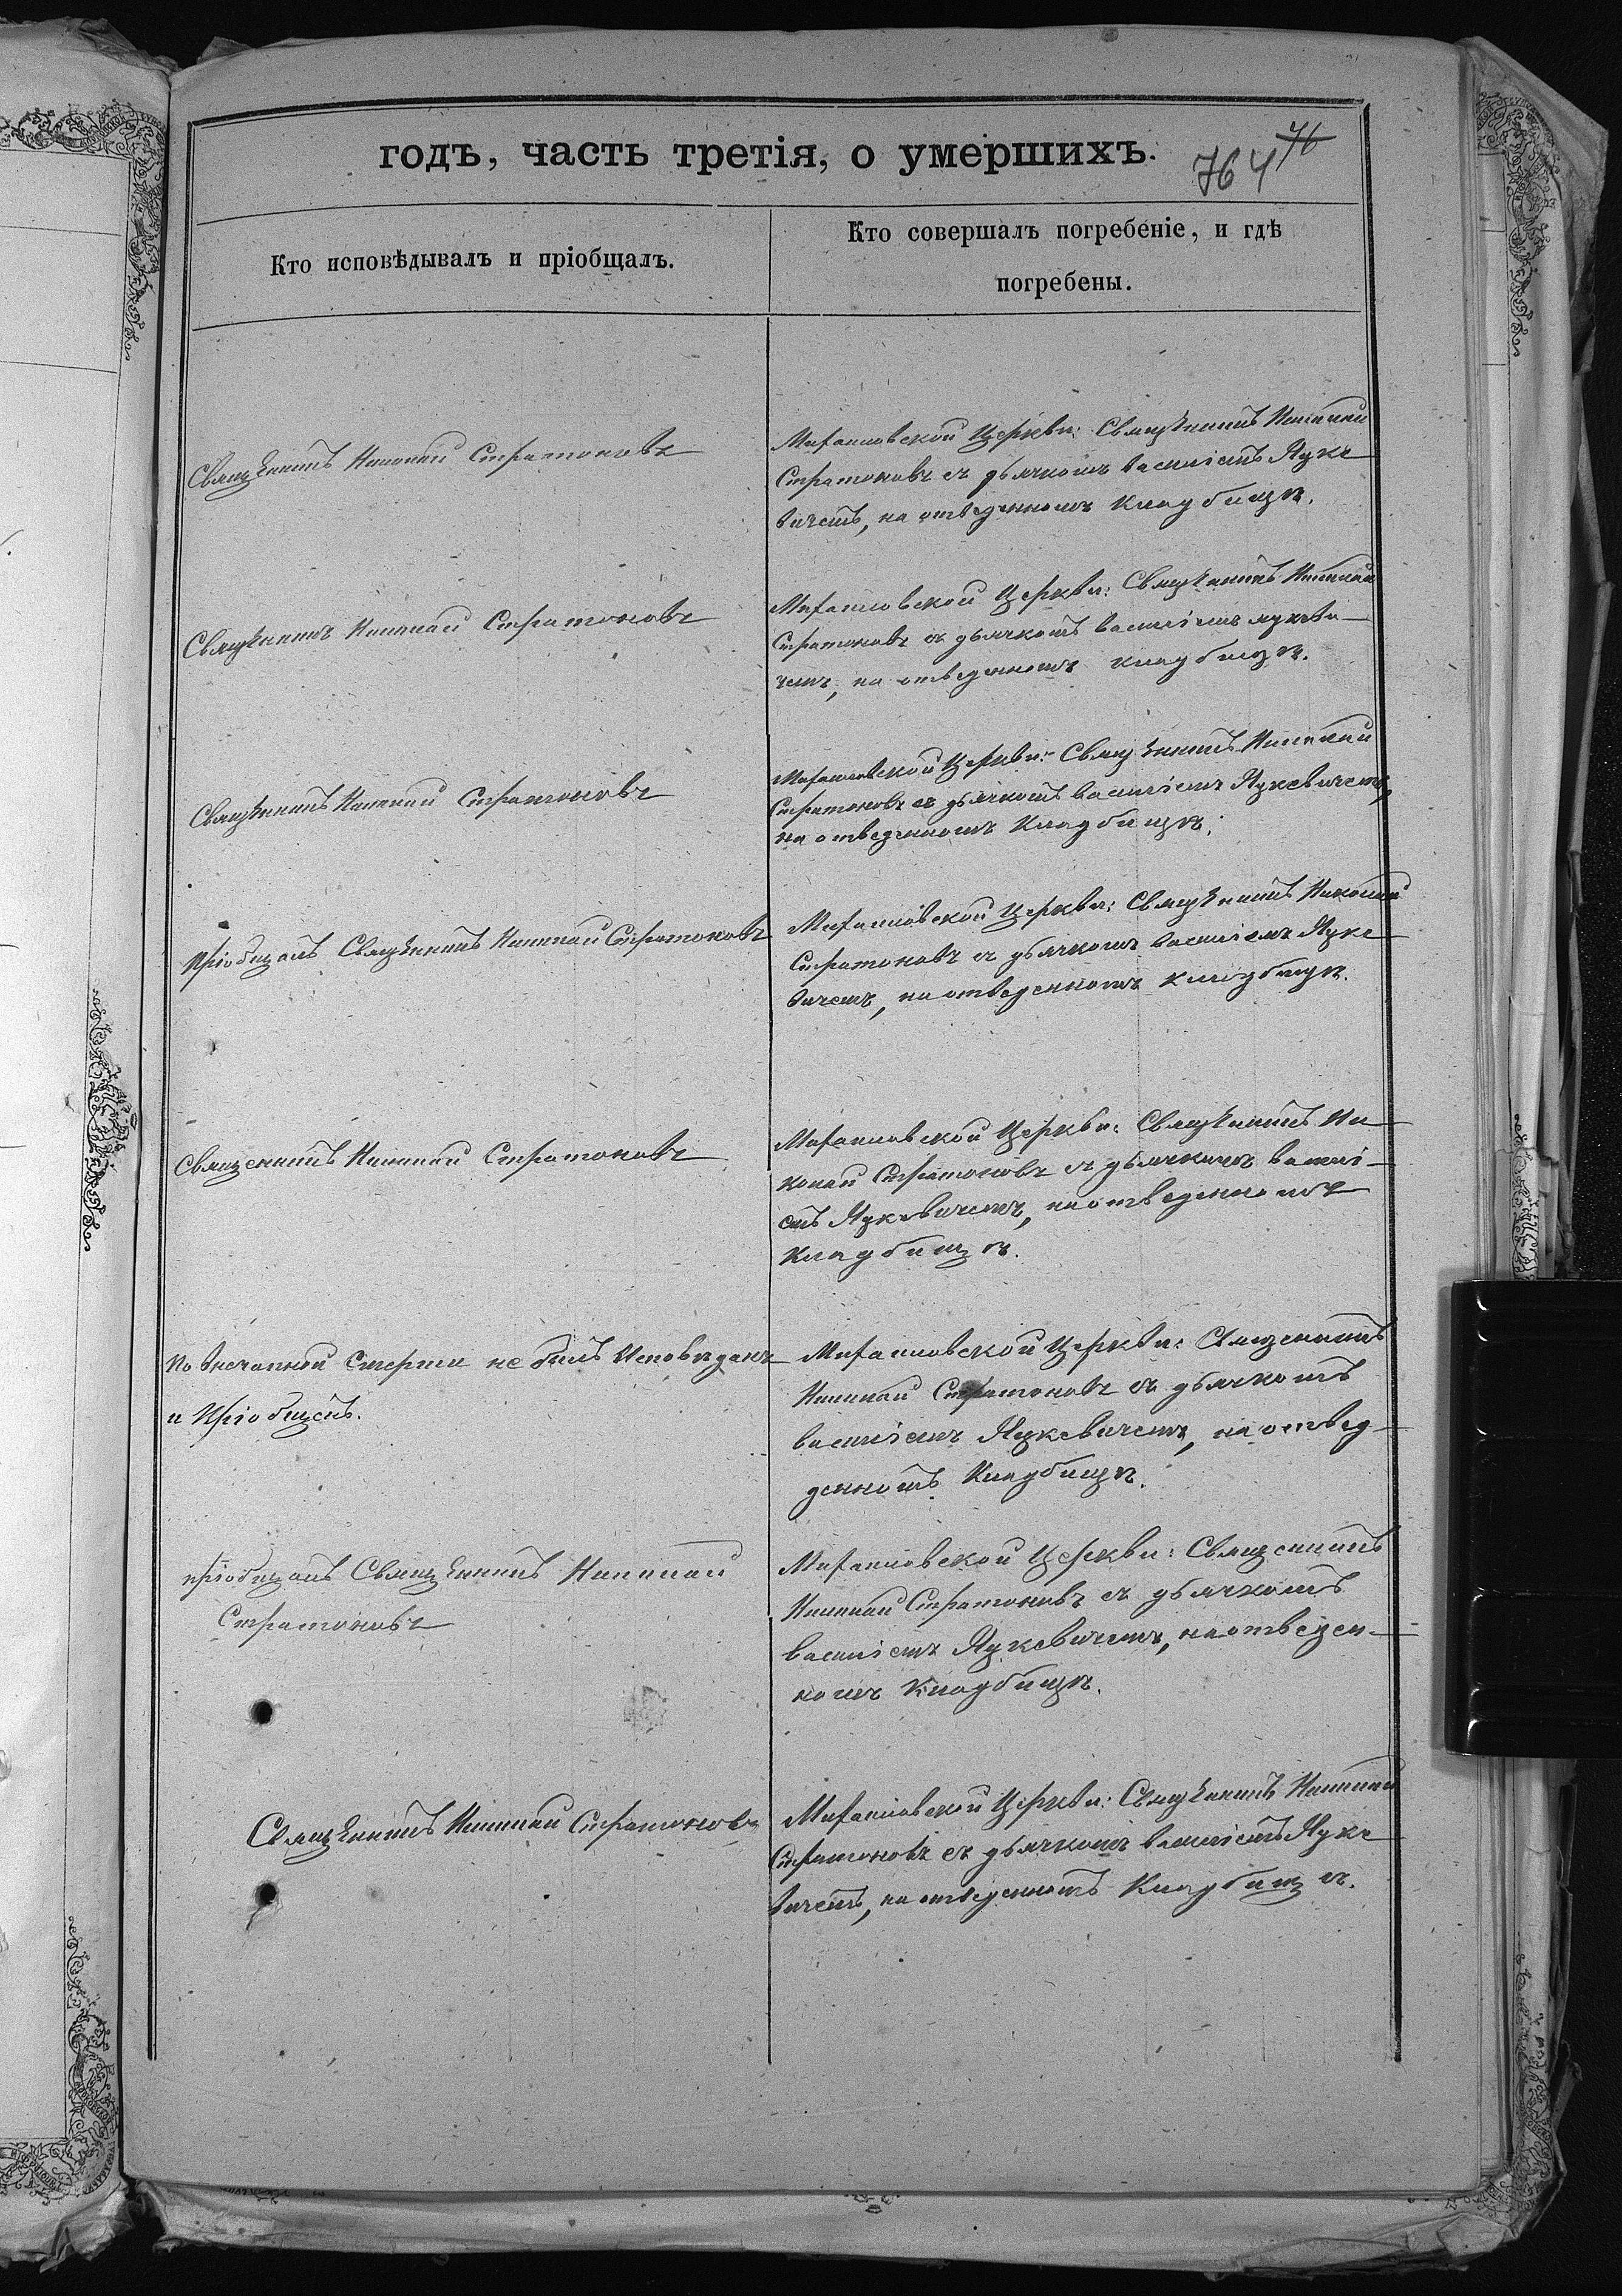 годъ, часть третія, о умершихъ.
764 76
Кто исповѣдывалъ и пріобщалъ.
Кто совершалъ погребеніе, и гдѣ
погребены.
Священникъ Николай Стратоновъ
Церкви: Священникъ Николай
Стратоновъ съ дьячкомъ Василіемъ Яцке
вичемъ, на отведенномъ кладбищѣ.
Священникъ Николай Стратоновъ
Церкви: Священникъ Николай
Стратоновъ съ дьячкомъ Василіемъ Яцкеви-
чемъ, на отведенномъ кладбищѣ.
Священникъ Николай Стратоновъ
Церкви: Священникъ Николай
Стратоновъ съ дьячкомъ Василіемъ Яцкевичемъ,
на отведенномъ кладбищѣ.
Пріобщалъ Священникъ Николай Стратоновъ
Церкви: Священникъ Николай
Стратоновъ съ дьячкомъ Василіемъ Яцке
вичемъ, на отведенномъ кладбищѣ.
Священникъ Николай Стратоновъ
Церкви: Священникъ Ни-
колай Стратоновъ съ дьячкомъ Василі-
емъ Яцкевичемъ, на отведенномъ
кладбищѣ.
По внезапной смерти не былъ исповѣданъ
и пріобщенъ.
Церкви: Священникъ
Николай Стратоновъ съ дьячкомъ
Василіемъ Яцкевичемъ, на отвед-
денномъ кладбищѣ.
пріобщалъ Священникъ Николай
Стратоновъ
Церкви: Священникъ
Николай Стратоновъ съ дьячкомъ
Василіемъ Яцкевичемъ, на отведен-
номъ кладбищѣ.
Священникъ Николай Стратоновъ
Церкви: Священникъ Николай
Стратоновъ съ дьячкомъ Василіемъ Яцке
вичемъ, на отведенномъ кладбищѣ.